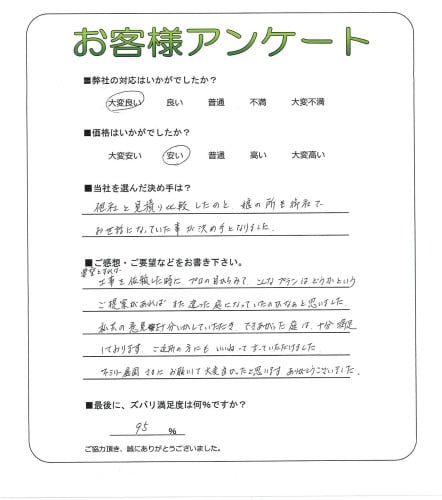 お客様アンケート
■弊社の対応はいかがでしたか?
大変良い 良い 普通 不満 大変不満
■価格はいかがでしたか?
大変安い 安い 普通 高い 大変高い
■当社を選んだ決め手は?
他社と見積り比較したのと、娘の所も御社で
お世話になっていた事が決め手となりました。
■ご感想・ご要望などをお書き下さい。
要望とすれば
工事を依頼した時に、プロの目からみて、こんなプランはどうかという
ご提案があれば また違った庭になっていたのかなぁと思いました。
私共の意見 していただき できあがった庭は、十分満足
しております。ご近所の方にも いいねって言っていただけました
ファミリー庭園 さまに お願いして大変良かったと思います ありがとうございました。
■最後に、ズバリ満足度は何%ですか?
95 %
ご協力頂き、誠にありがとうございました。